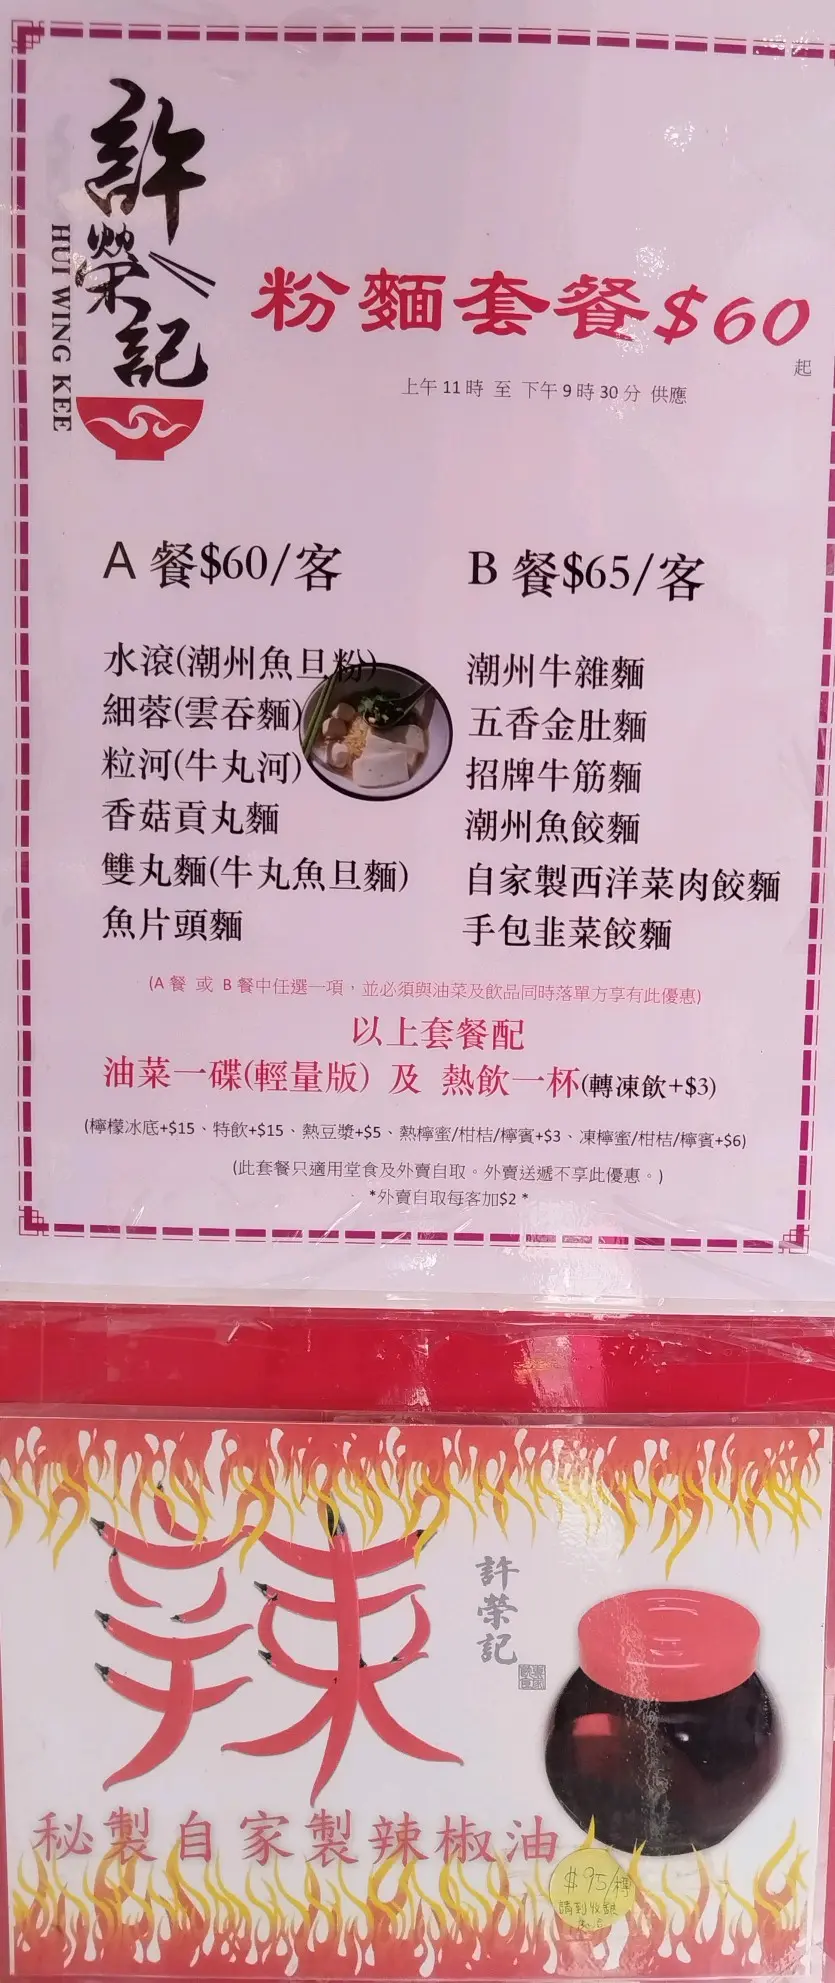 許榮記
HUI WING KEE
粉麵套餐$60
起
上午11時 至 下午9時30分 供應
A 餐$60/客
水滾(潮州魚旦粉)
細蓉(雲吞麵)
粒河(牛丸河)
香菇貢丸麵
雙丸麵(牛丸魚旦麵)
魚片頭麵
B 餐$65/客
潮州牛雜麵
五香金肚麵
招牌牛筋麵
潮州魚餃麵
自家製西洋菜肉餃麵
手包韭菜餃麵
(A 餐 或 B 餐中任選一項，並必須與油菜及飲品同時落單方享有此優惠)
以上套餐配
油菜一碟(輕量版) 及 熱飲一杯(轉凍飲+$3)
(檸檬冰底+$15、特飲+$15、熱豆漿+$5、熱檸蜜/柑桔/檸賓+$3、凍檸蜜/柑桔/檸賓+$6)
(此套餐只適用堂食及外賣自取。外賣送遞不享此優惠。)
*外賣自取每客加$2 *
辣
許榮記
秘製自家製辣椒油
$95/樽
請到收銀